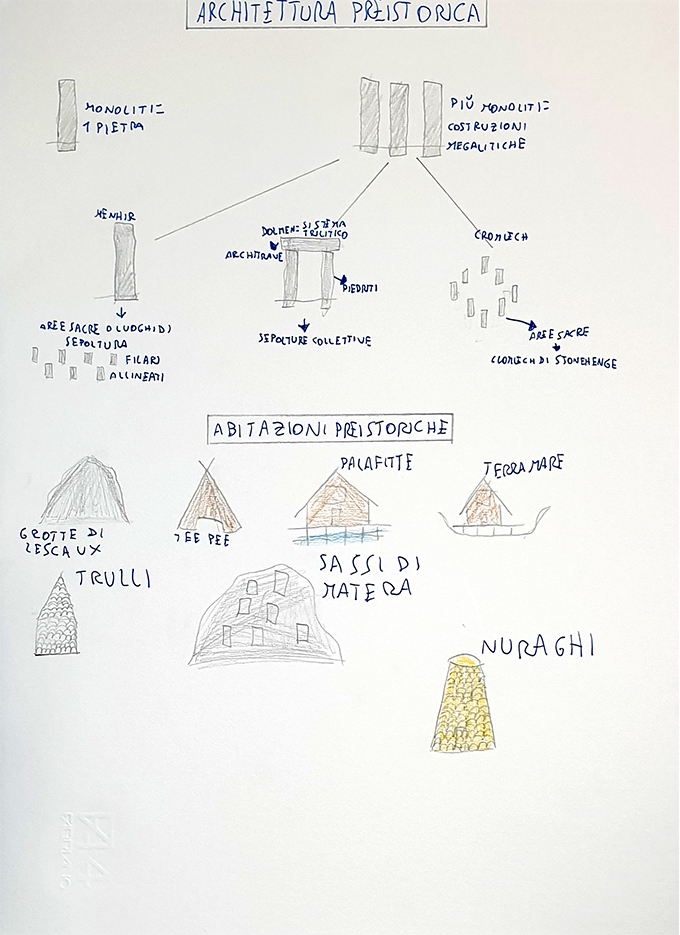 ARCHITETTURA PREISTORICA
MONOLITI=
1 PIETRA
PIÙ MONOLITI=
COSTRUZIONI
MEGALITICHE
MENHIR
AREE SACRE O LUOGHI DI
SEPOLTURA
FILARI
ALLINEATI
DOLMEN: SISTEMA
TRILITICO
ARCHITRAVE
PIEDRITI
SEPOLTURE COLLETTIVE
CROMLECH
AREE SACRE
CROMLECH DI STONEHENGE
ABITAZIONI PREISTORICHE
GROTTE DI
LESCAUX
TEE PEE
PALAFITTE
TERRAMARE
TRULLI
SASSI DI
MATERA
NURAGHI